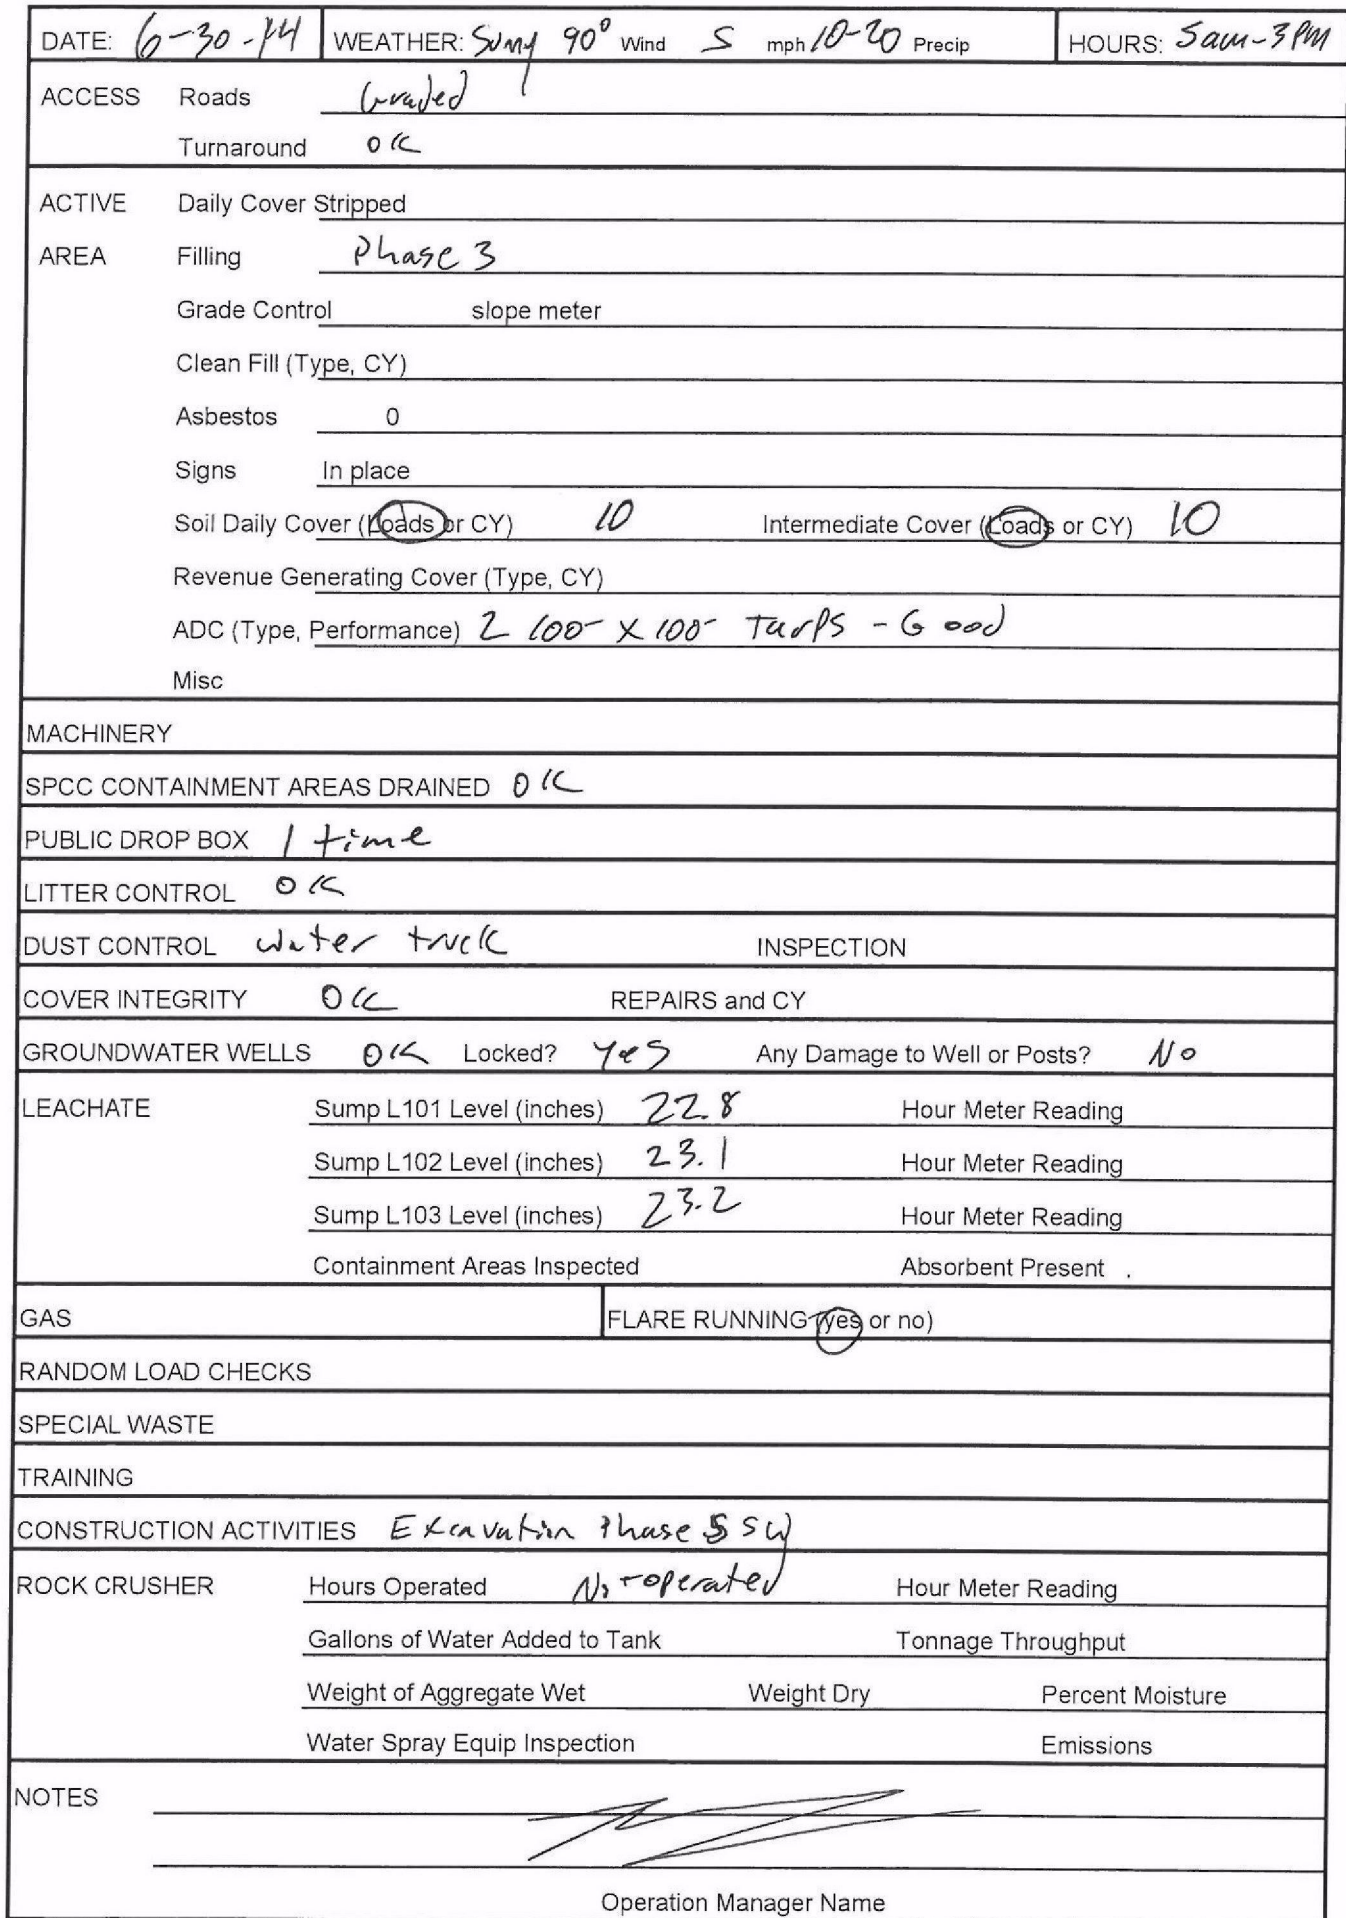 DATE: 6-30-14 WEATHER: Sunny 90° Wind S mph 10-20 Precip HOURS: 5am-3PM
ACCESS Roads Graded
Turnaround OK
ACTIVE Daily Cover Stripped
AREA Filling Phase 3
Grade Control slope meter
Clean Fill (Type, CY)
Asbestos 0
Signs In place
Soil Daily Cover (Loads or CY) 10 Intermediate Cover (Loads or CY) 10
Revenue Generating Cover (Type, CY)
ADC (Type, Performance) 2 100- X 100- Tarps - Good
Misc
MACHINERY
SPCC CONTAINMENT AREAS DRAINED OK
PUBLIC DROP BOX 1 time
LITTER CONTROL OK
DUST CONTROL water truck INSPECTION
COVER INTEGRITY OK REPAIRS and CY
GROUNDWATER WELLS OK Locked? Yes Any Damage to Well or Posts? No
LEACHATE Sump L101 Level (inches) 22.8 Hour Meter Reading
Sump L102 Level (inches) 23.1 Hour Meter Reading
Sump L103 Level (inches) 23.2 Hour Meter Reading
Containment Areas Inspected Absorbent Present .
GAS FLARE RUNNING (yes or no)
RANDOM LOAD CHECKS
SPECIAL WASTE
TRAINING
CONSTRUCTION ACTIVITIES Excavation Phase 5 SW
ROCK CRUSHER Hours Operated Not operated Hour Meter Reading
Gallons of Water Added to Tank Tonnage Throughput
Weight of Aggregate Wet Weight Dry Percent Moisture
Water Spray Equip Inspection Emissions
NOTES
Operation Manager Name